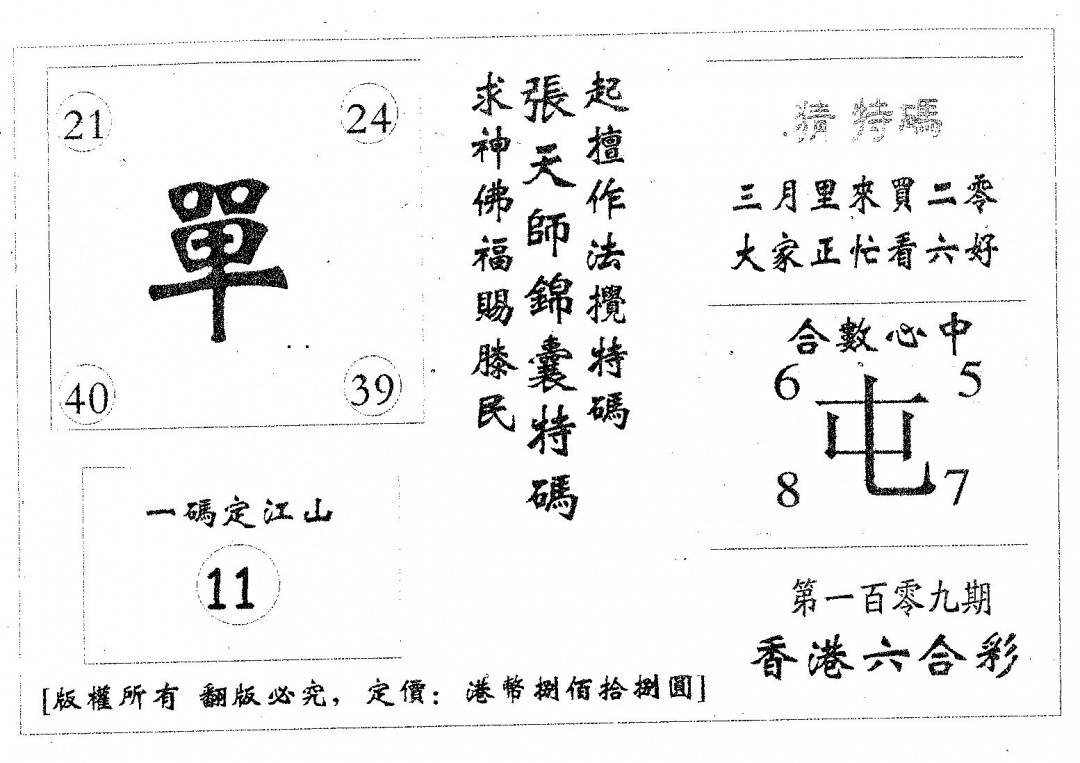 21
24
單
40
39
一碼定江山
11
起擅作法攪特碼
張天師錦囊特碼
求神佛福賜滕民
猜特碼
三月里來買二零
大家正忙看六好
合數心中
6
5
屯
8
7
第一百零九期
香港六合彩
[版權所有 翻版必究，定價：港幣捌佰拾捌圓]